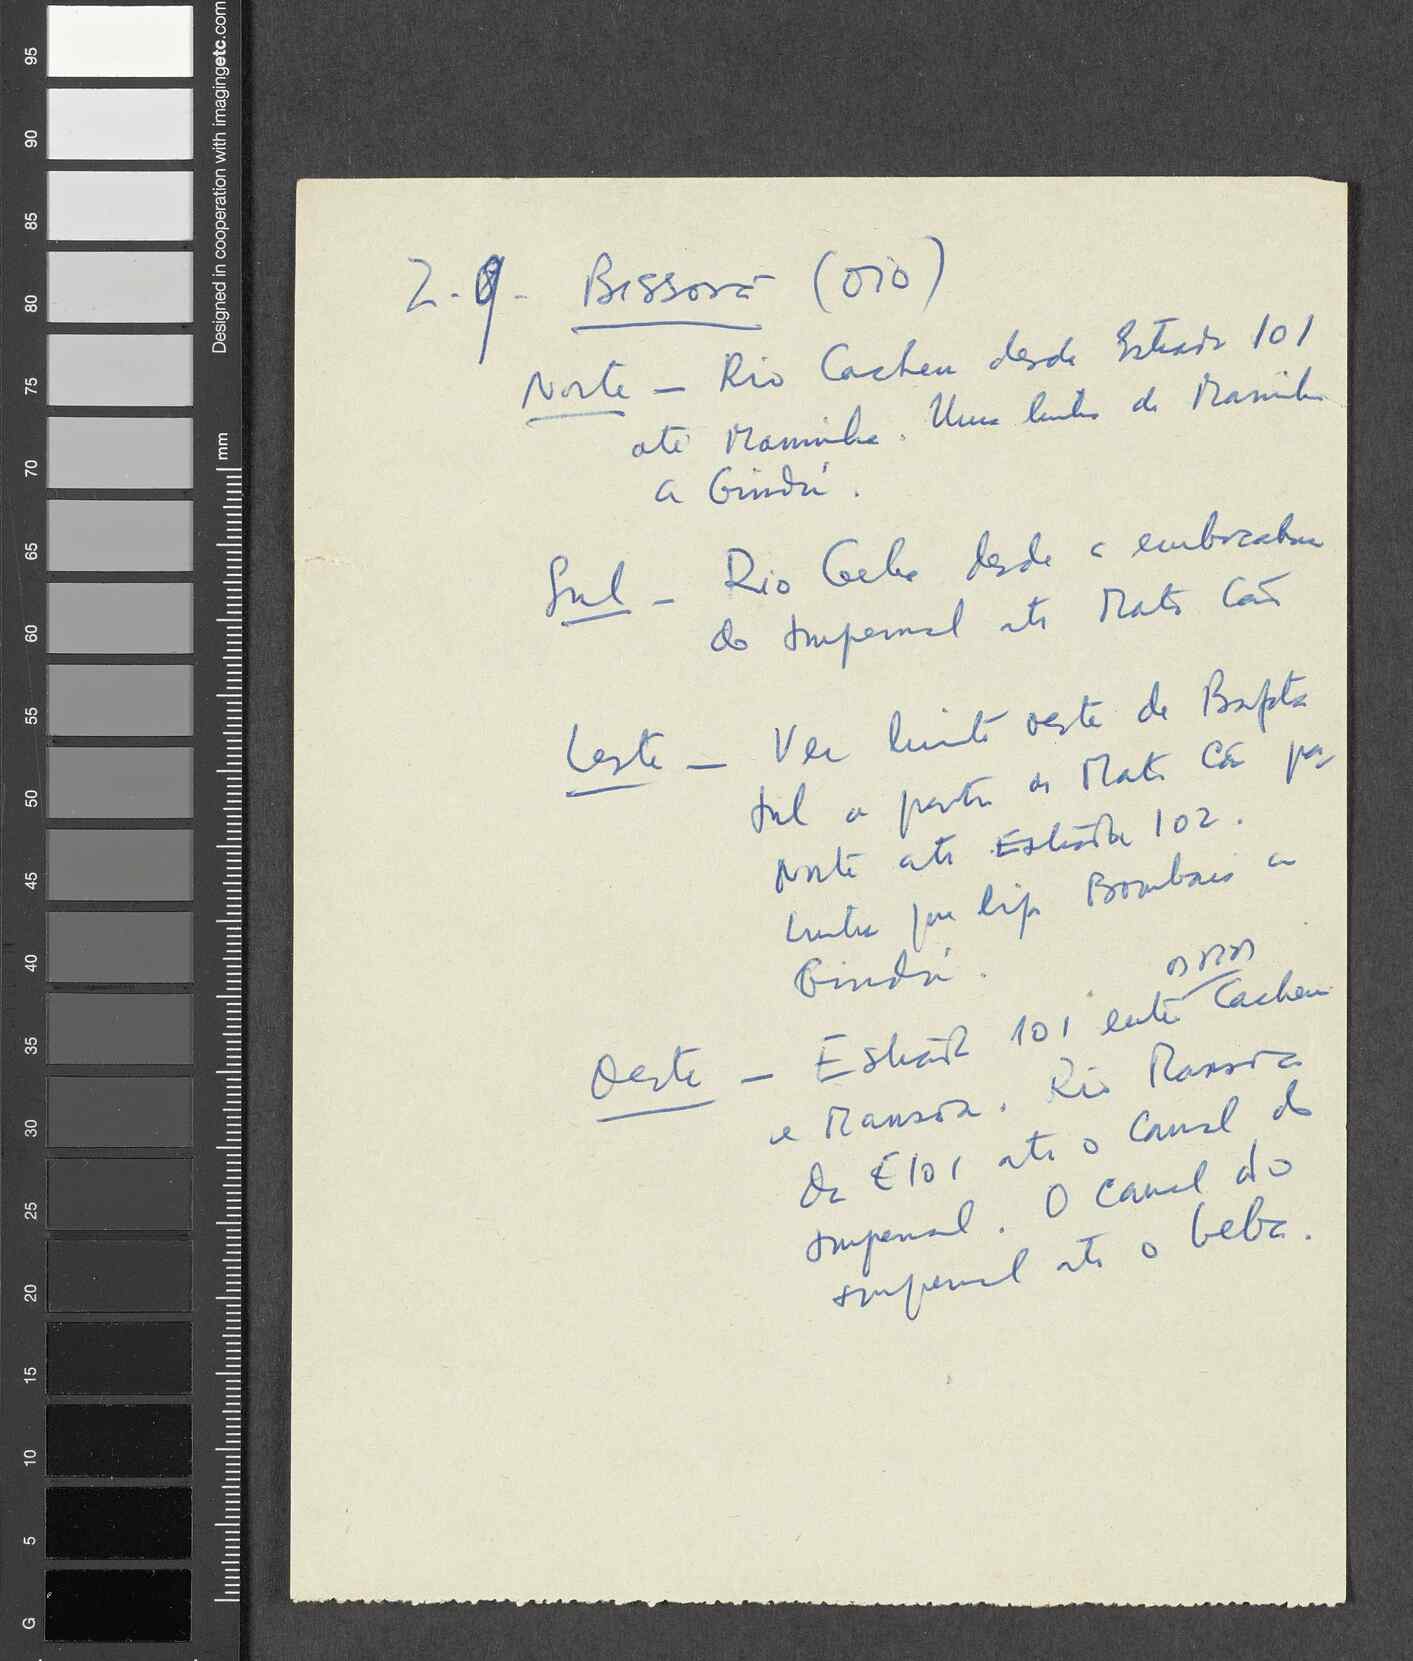 2.9. Bissorã (OIO)
Norte — Rio Cacheu desde Estrada 101
até Maninha. Uma linha de Maninha
a Gindú.
Sul — Rio Geba desde a embocadura
do Impernal até Mato Cão
Leste — Ver limite oeste de Bafata
Sul a partir de Mato Cão para
Norte até Estrada 102.
Linha que liga Bombaio a
Gindú.
Oeste — Estrada 101 entre Cacheu
e Mansoa. Rio Mansoa
da E101 até o Canal do
Impernal. O canal do
impernal até o Geba.
Designed in cooperation with imagingetc.com
mm
95
90
85
80
75
70
65
60
55
50
45
40
35
30
25
20
15
10
5
G